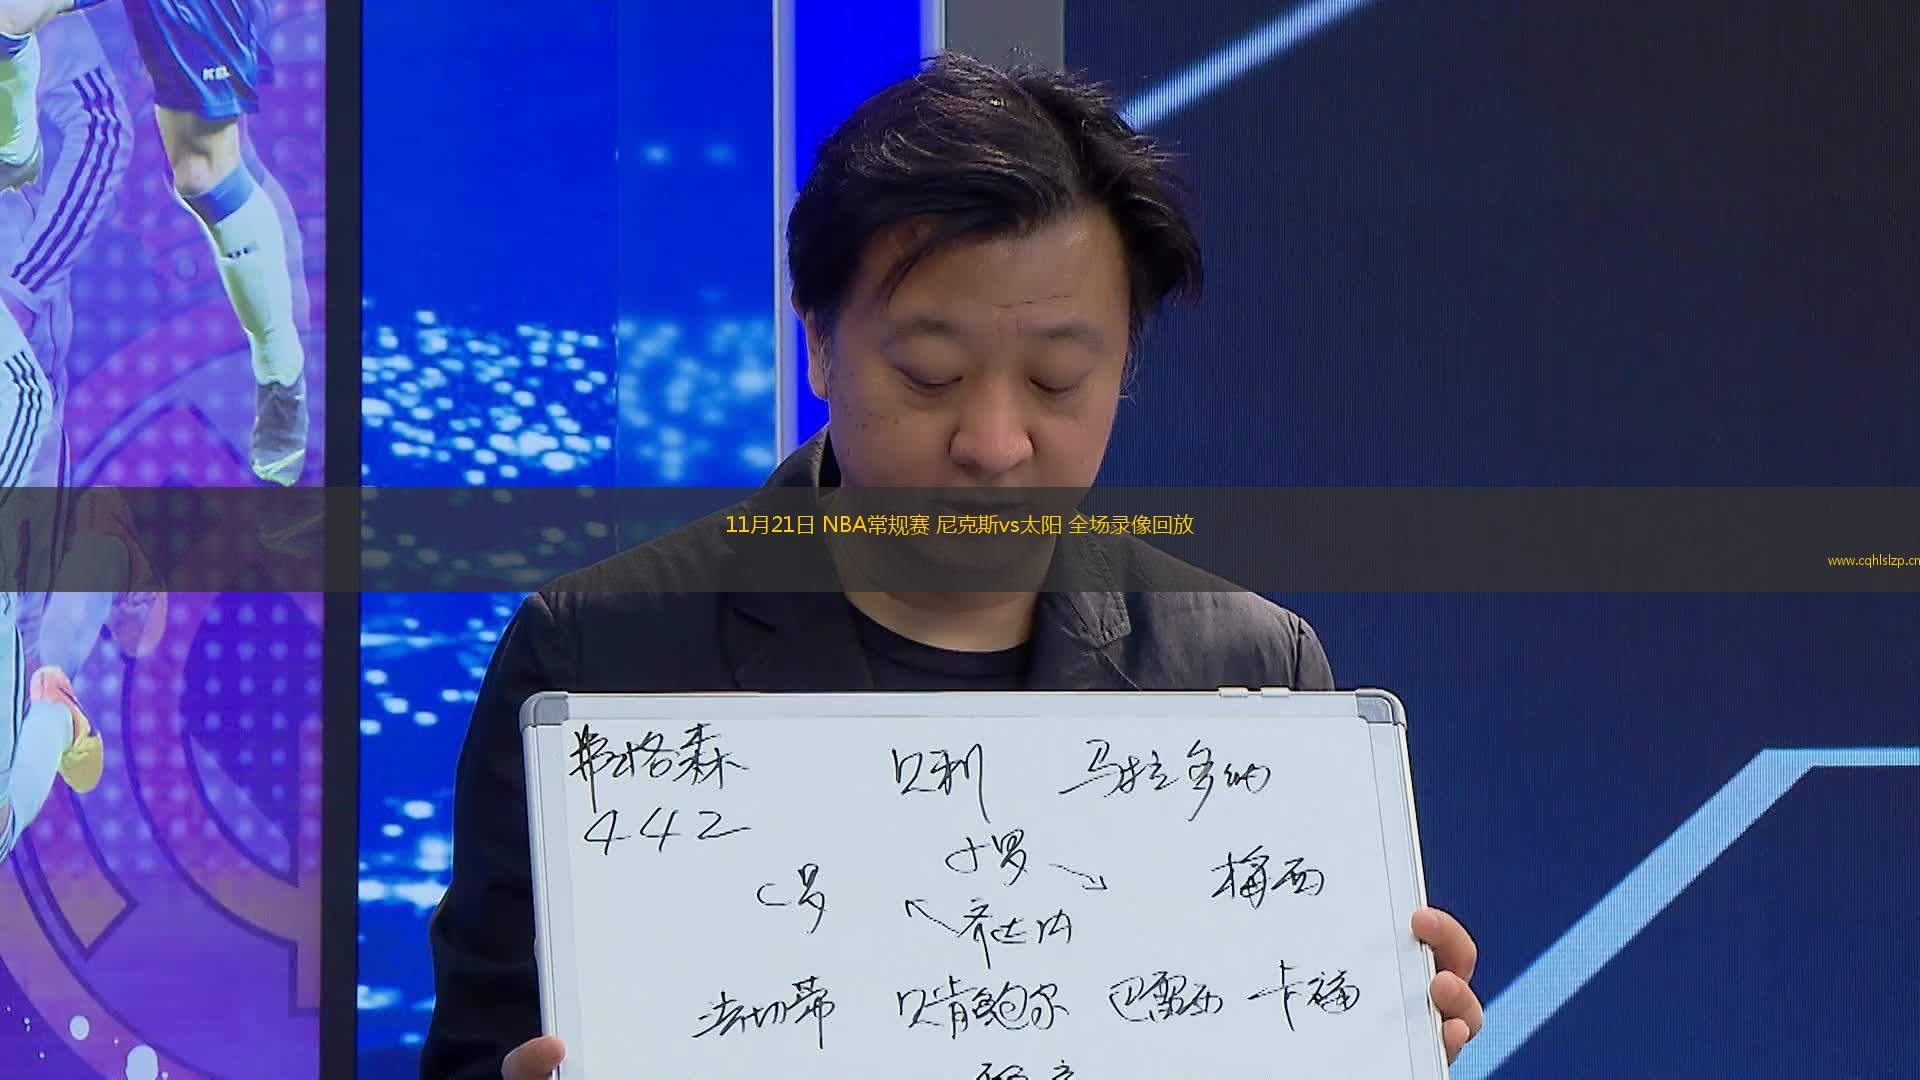 11月21日 NBA常规赛 尼克斯vs太阳 全场录像回放
www.cqhlslzp.cn
弗格森 贝利 马拉多纳
442
小罗
C罗 梅西
齐达内
法切蒂 贝肯鲍尔 巴雷西 卡福